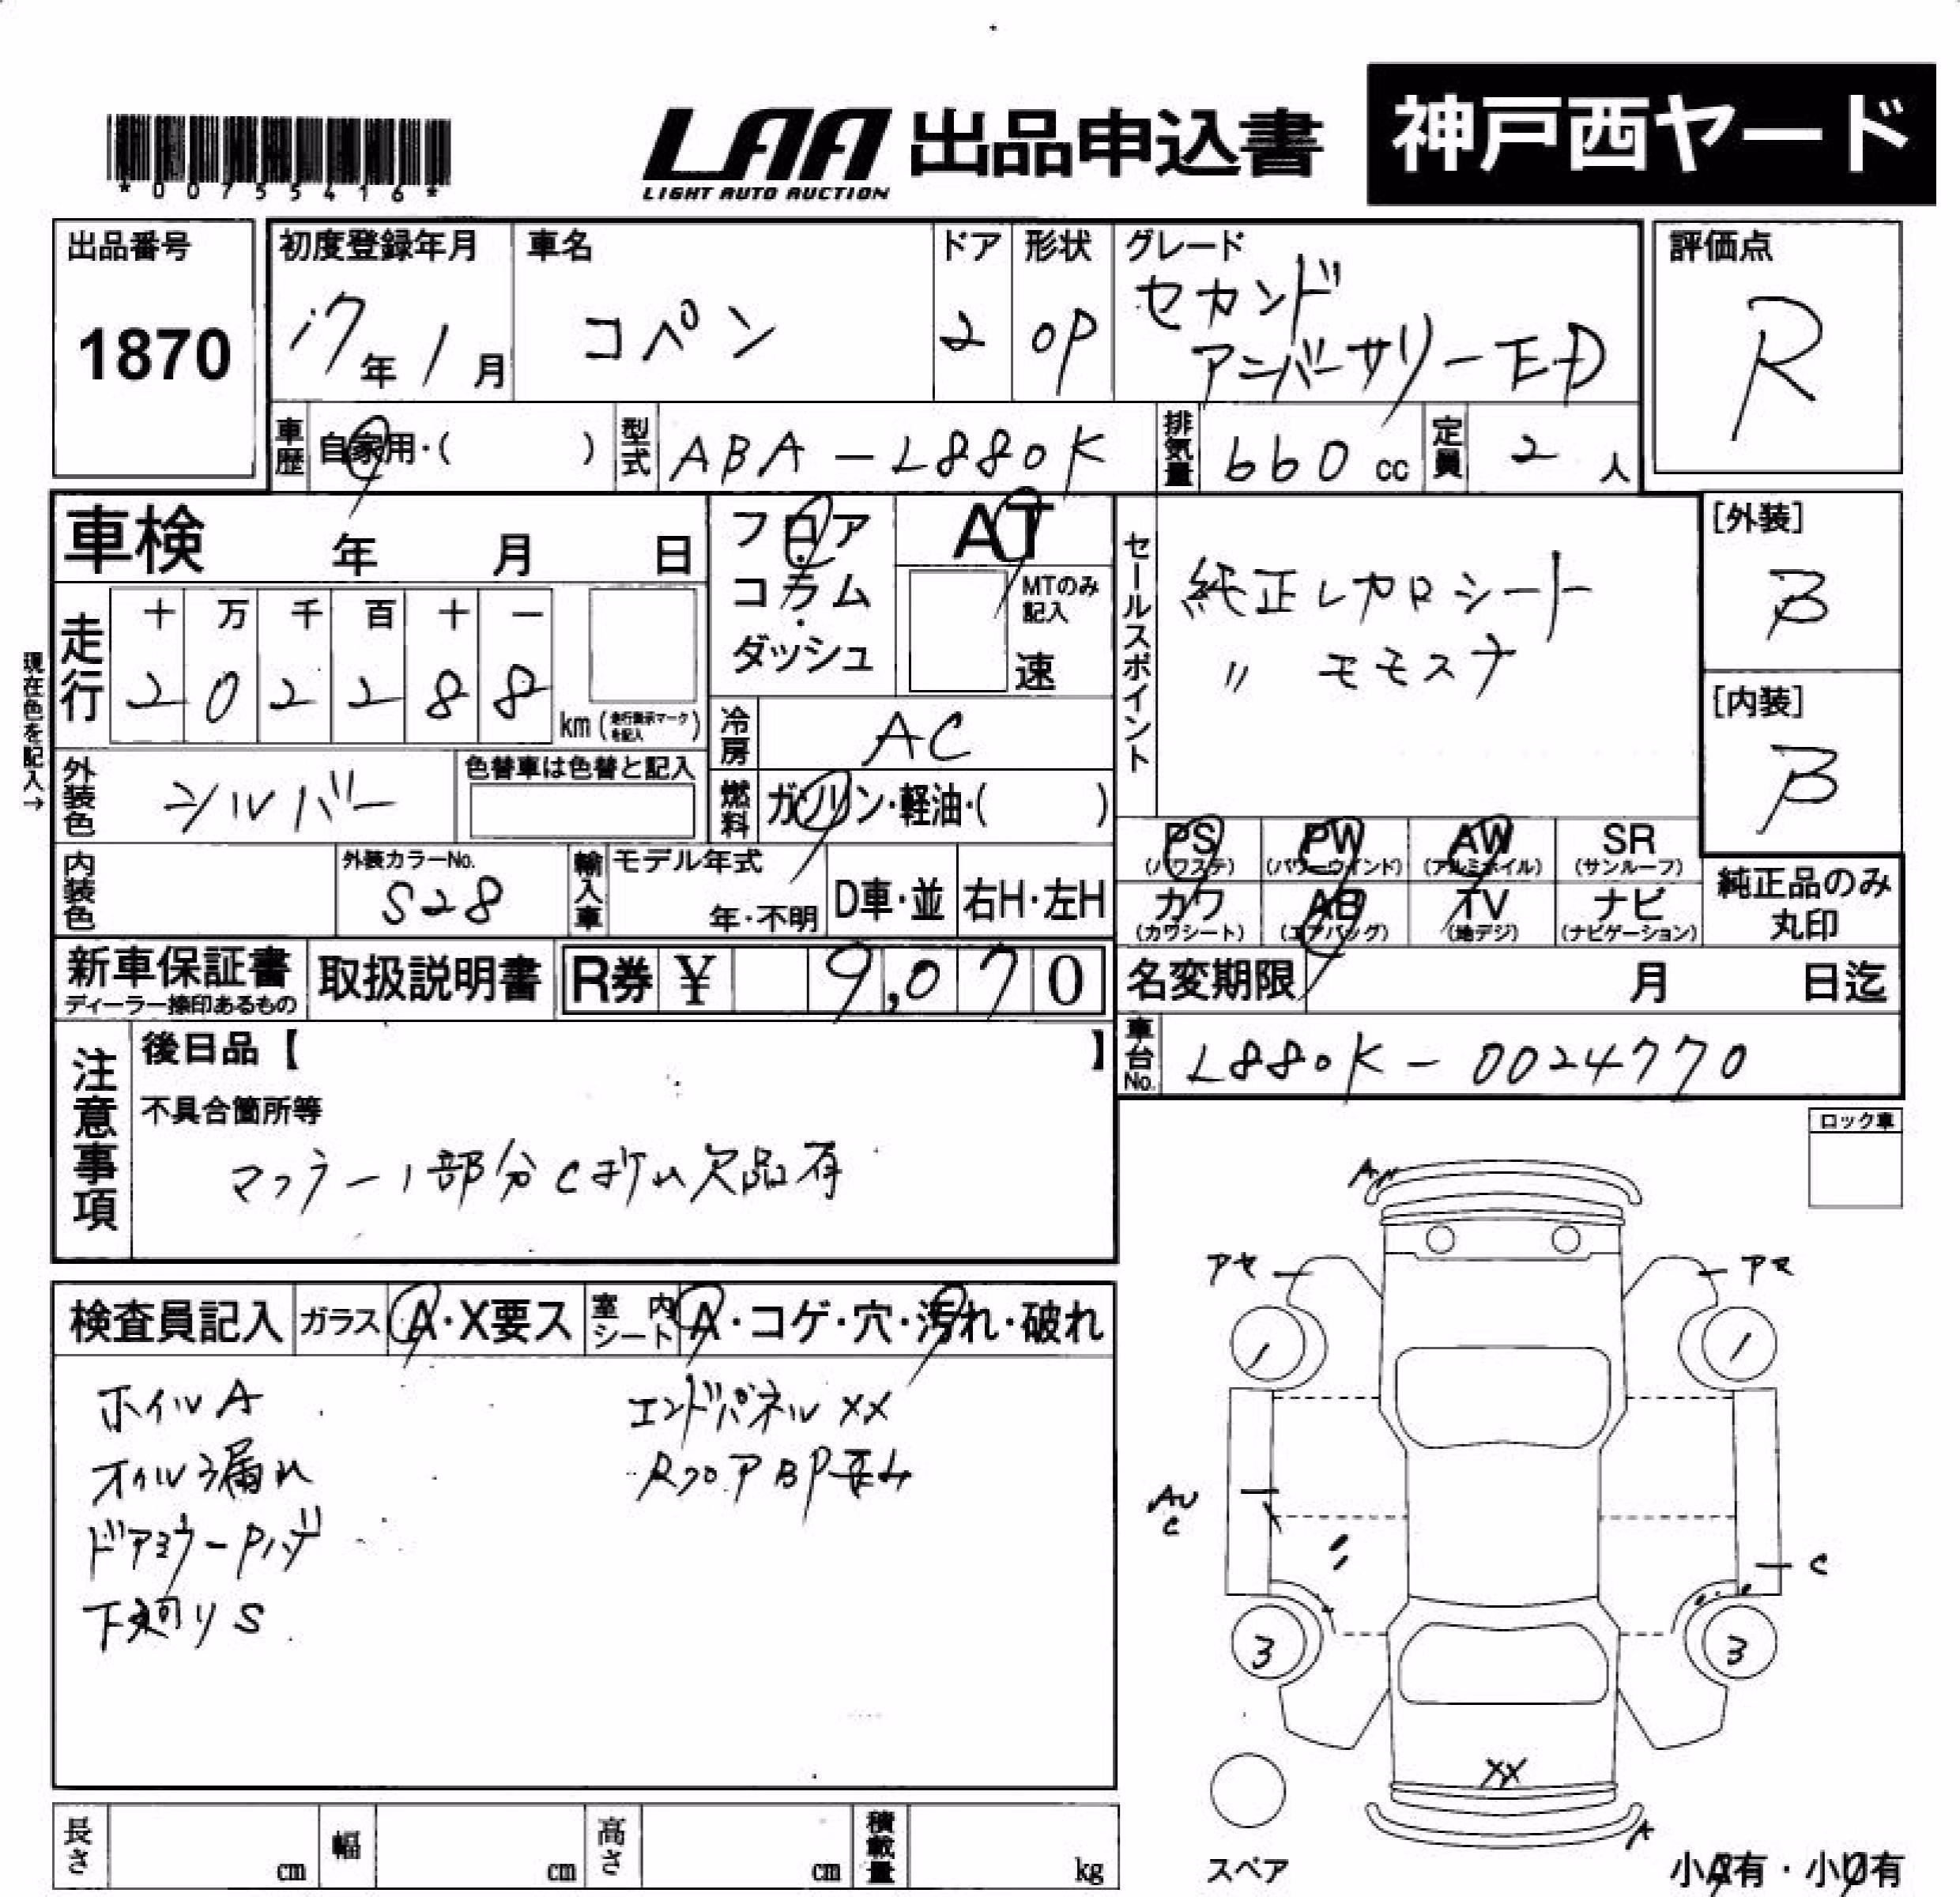 *00755416*
LAA 出品申込書
LIGHT AUTO AUCTION
神戸西ヤード
出品番号
1870
初度登録年月
17年1月
車名
コペン
ドア
2
形状
OP
グレード
セカンド
アニバーサリーED
評価点
R
車歴 自家用・( )
型式 ABA-L880K
排気量 660 cc
定員 2人
車検 年 月 日
フロア・
コラム・
ダッシュ
AT
MTのみ
記入
速
セールスポイント
純正レカロシート
〃 モモステ
[外装]
B
[内装]
B
現在色を記入→
走行
十 万 千 百 十 一
2 0 2 2 8 8
km (走行表示マークを記入)
冷房 AC
外装色 シルバー
色替車は色替と記入
燃料 ガソリン・軽油・( )
PS
(パワステ)
PW
(パワーウインド)
AW
(アルミホイル)
SR
(サンルーフ)
カワ
(カワシート)
AB
(エアバッグ)
TV
(地デジ)
ナビ
(ナビゲーション)
純正品のみ
丸印
内装色
外装カラーNo.
S28
輸入車
モデル年式
年・不明
D車・並
右H・左H
新車保証書
ディーラー捺印あるもの
取扱説明書
R券 ¥ 9,070
名変期限 月 日迄
車台No. L880K-0024770
注意事項
後日品【 】
不具合箇所等
マフラー1部分
欠品有
ロック車
検査員記入
ガラス A・X要ス
室内シート A・コゲ・穴・汚れ・破れ
ホイルA
オイル漏れ
ドアミラー
下廻りS
エンドパネルXX
RフロアBP歪み
アセ
アセ
1
1
AU
C
C
3
3
XX
A
スペア
小A有・小U有
長さ cm
幅 cm
高さ cm
積載量 kg